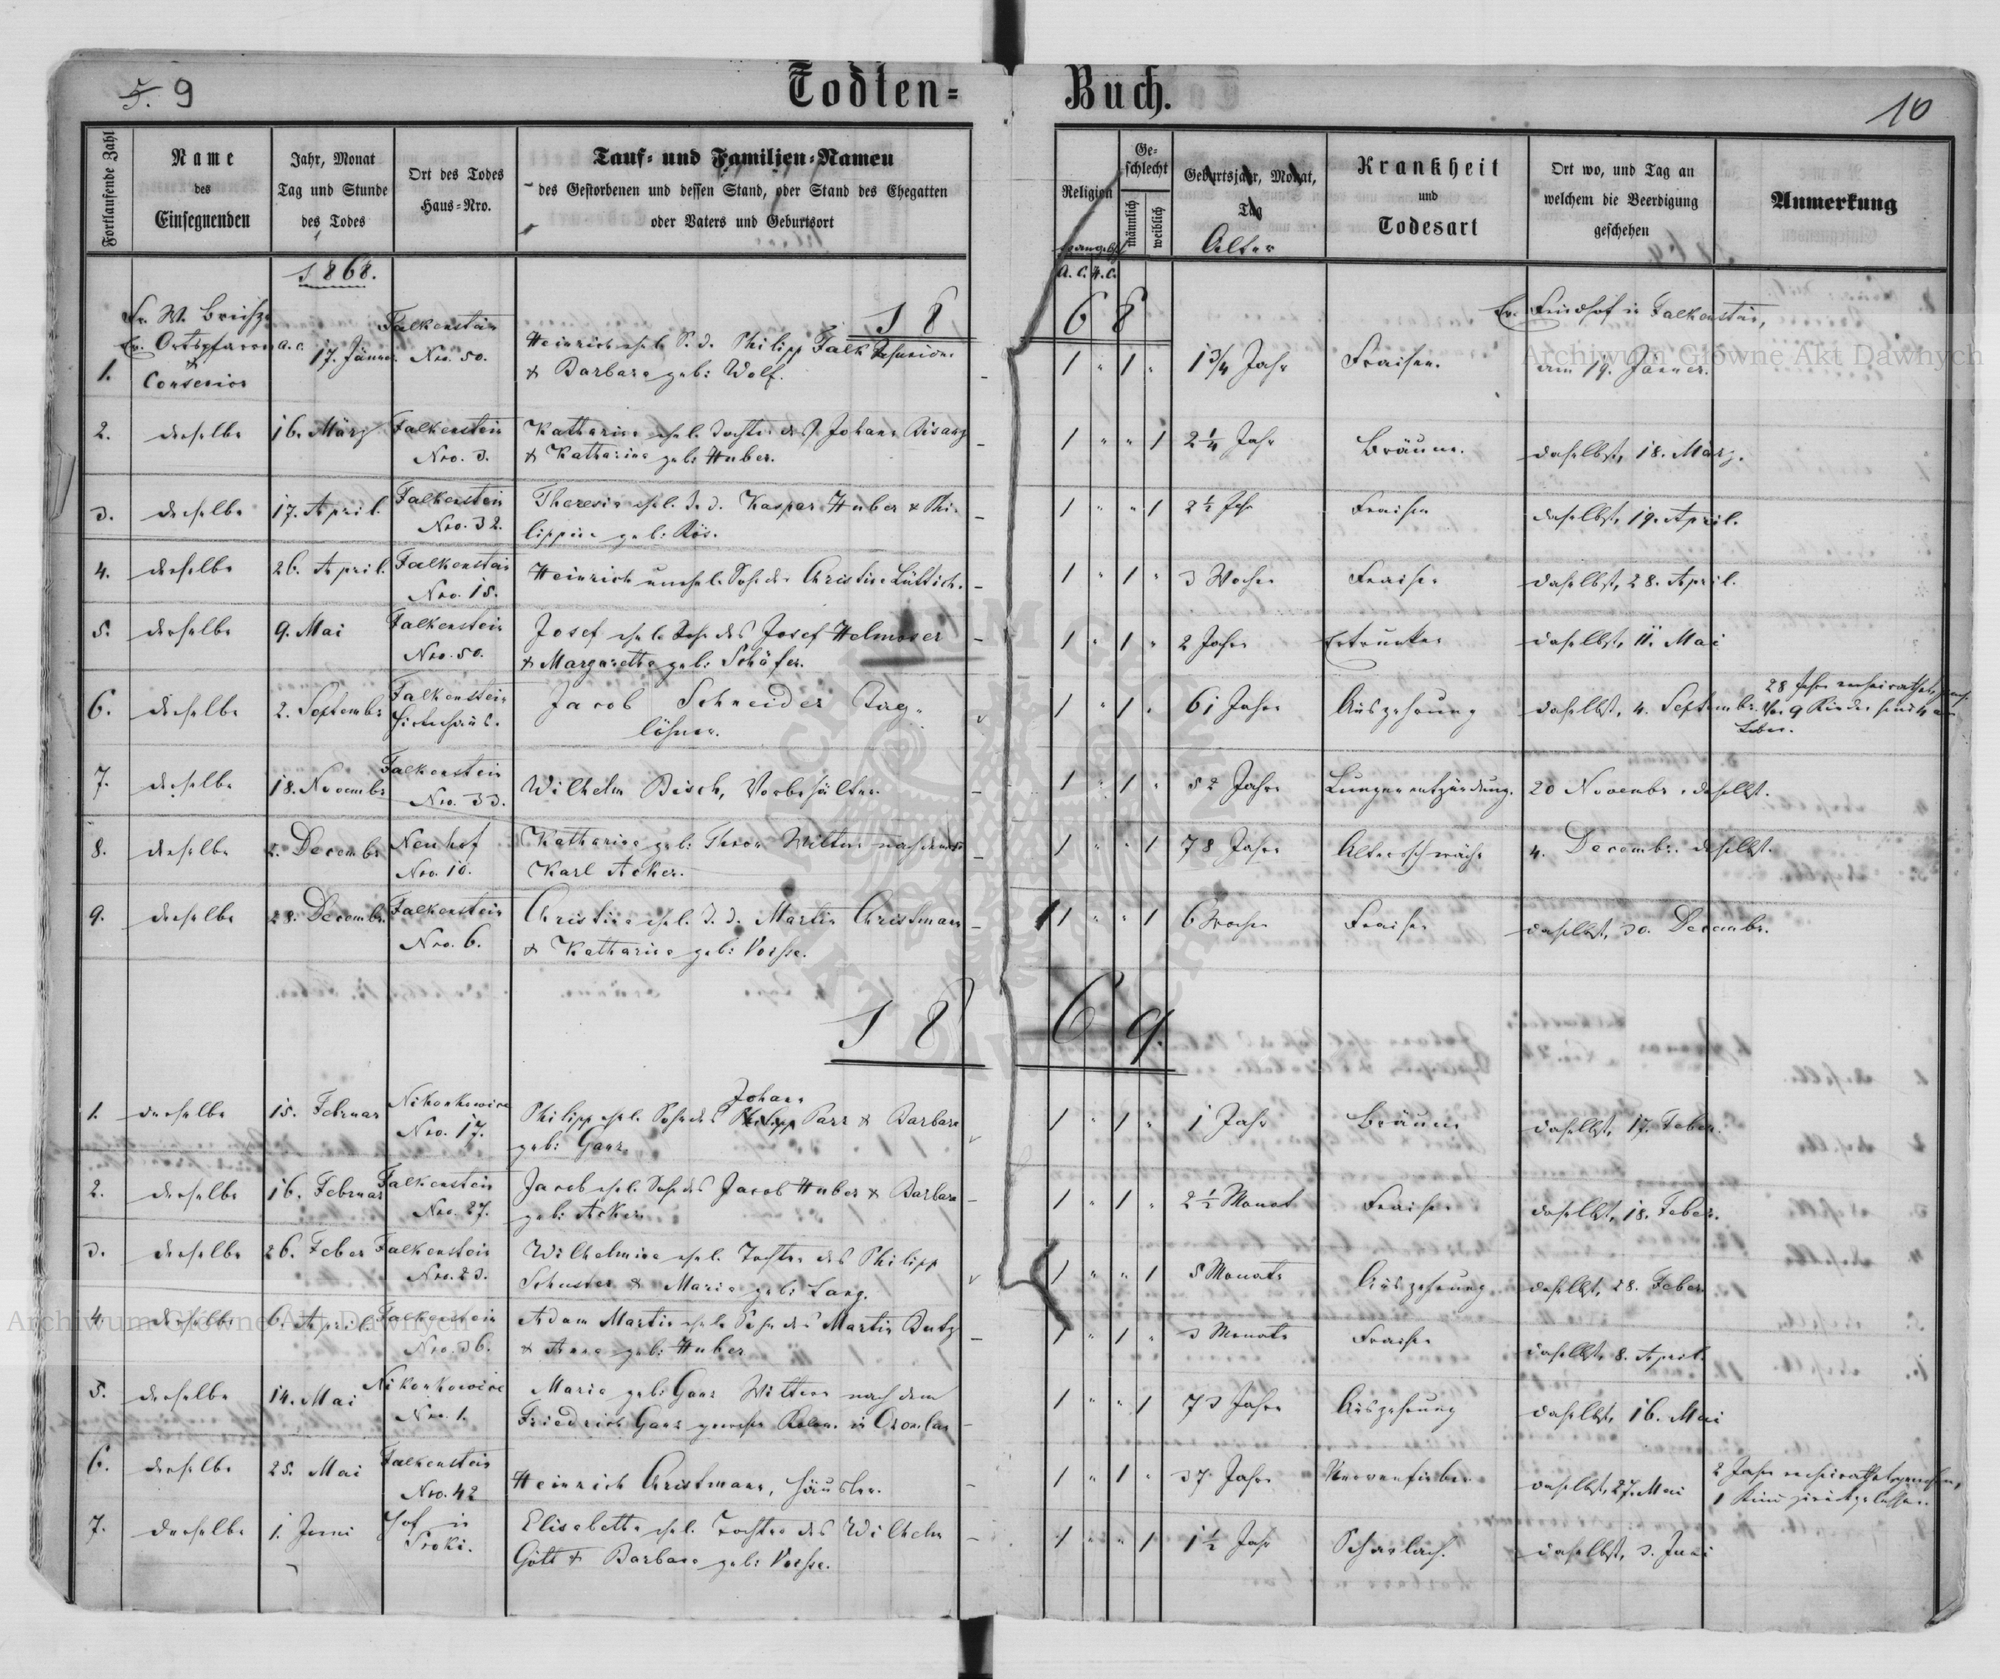 5. 9
Todten-Buch.
10
Fortlaufende Zahl
Name
des
Einsegnenden
Jahr, Monat
Tag und Stunde
des Todes
Ort des Todes
Haus-Nro.
Tauf- und Familien-Namen
des Gestorbenen und dessen Stand, oder Stand des Ehegatten
oder Vaters und Geburtsort
Religion
Geschlecht
männlich
weiblich
Geburtsjahr, Monat,
Tag
Alter
Krankheit
und
Todesart
Ort wo, und Tag an
welchem die Beerdigung
geschehen
Anmerkung
A. C. H. C.
1868.
1868
1. Ev. Ortspfarrer A. C. Consenior 17. Jänner Falkenstein Nro. 50.
Heinrich ehel. S. d. Philipp Falk
& Barbara geb: Wolf.
1 " 1 " 1 3/4 Jahr Fraisen. Ev. Friedhof in Falkenstein, am 19. Jänner.
2. derselbe 16. März Falkenstein Nro. 3.
Katharina ehel. Tochter des Johann Bisanz
& Katharina geb: Huber.
1 " " 1 2 1/4 Jahr Bräune. daselbst, 18. März.
3. derselbe 17. April. Falkenstein Nro. 32.
Theresia ehel. T. d. Kaspar Huber & Phi-
lippina geb: Rös.
1 " " 1 2 1/2 Jahr Fraisen daselbst, 19. April.
4. derselbe 26. April. Falkenstein Nro. 15.
Heinrich unehel. Sohn der Christine Lüttich.
1 " 1 " 3 Wochen Fraisen daselbst, 28. April.
5. derselbe 9. Mai Falkenstein Nro. 50.
Josef ehel. Sohn des Josef Helmoser
& Margaretha geb: Schäfer.
1 " 1 " 2 Jahre Ertrunken daselbst, 11. Mai
6. derselbe 2. Septembr Falkenstein Hirtenhaus.
Jacob Schneider Tag-
löhner.
1 " 1 " 61 Jahre Auszehrung daselbst, 4. Septembr. 28 Jahre verheirathet
Von 9 Kinder sind 4 am
Leben.
7. derselbe 18. Novembr Falkenstein Nro. 33.
Wilhelm Bisch, Vorbehälter.
1 " 1 " 52 Jahre Lungenentzündung. 20 Novembr. daselbst.
8. derselbe 2. Decembr Neuhof Nro. 10.
Katharina geb: Witwe nach dem
Karl Acker.
1 " " 1 78 Jahre Altersschwäche 4. Decembr. daselbst.
9. derselbe 28. Decembr. Falkenstein Nro. 6.
Christina ehel. T. d. Martin Christmann
& Katharina geb:
1 " " 1 6 Wochen Fraisen daselbst, 30. Decembr.
1869.
1. derselbe 15. Februar Nikonkowice Nro. 17.
Johann
Philipp ehel. Sohn des Philipp Parr & Barbara
geb: Ganz
1 " 1 " 1 Jahr Bräune daselbst, 17. Feber.
2. derselbe 16. Februar Falkenstein Nro. 27.
Jacob ehel. Sohn des Jacob Huber & Barbara
geb: Acker
1 " 1 " 2 1/2 Monat Fraisen daselbst, 18. Feber.
3. derselbe 26. Feber Falkenstein Nro. 23.
Wilhelmina ehel. Tochter des Philipp
Schuster & Maria geb: Lang.
1 " " 1 5 Monate Auszehrung daselbst, 28. Feber
4. derselbe 6. April Falkenstein Nro. 36.
Adam Martin ehel. Sohn des Martin Butz
& Anna geb: Huber
1 " 1 " 3 Monate Fraisen daselbst, 8. April.
5. derselbe 14. Mai Nikonkowice Nro. 1.
Maria geb: Ganz Witwe nach dem
Friedrich Ganz
1 " " 1 73 Jahre Auszehrung daselbst, 16. Mai
6. derselbe 25. Mai Falkenstein Nro. 42
Heinrich Christmann, Häusler.
1 " 1 " 37 Jahre Nervenfieber daselbst, 27. Mai 2 Jahre verheirathet gewesen,
1 Kind zurückgelassen.
7. derselbe 1. Juni Hof in
Elisabetha ehel. Tochter des Wilhelm
Gött & Barbara geb:
1 " " 1 1 1/2 Jahr Scharlach. daselbst, 3. Juni
Archiwum Główne Akt Dawnych
Archiwum Główne Akt Dawnych
ARCHIWUM GŁÓWNE AKT DAWNYCH